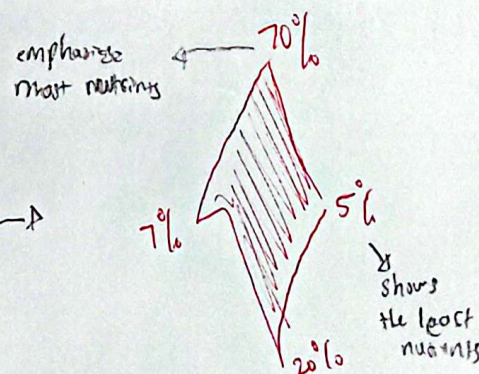 emphasize
most nutrints
70%
7%
5%
shows
the least
nutrints
20%